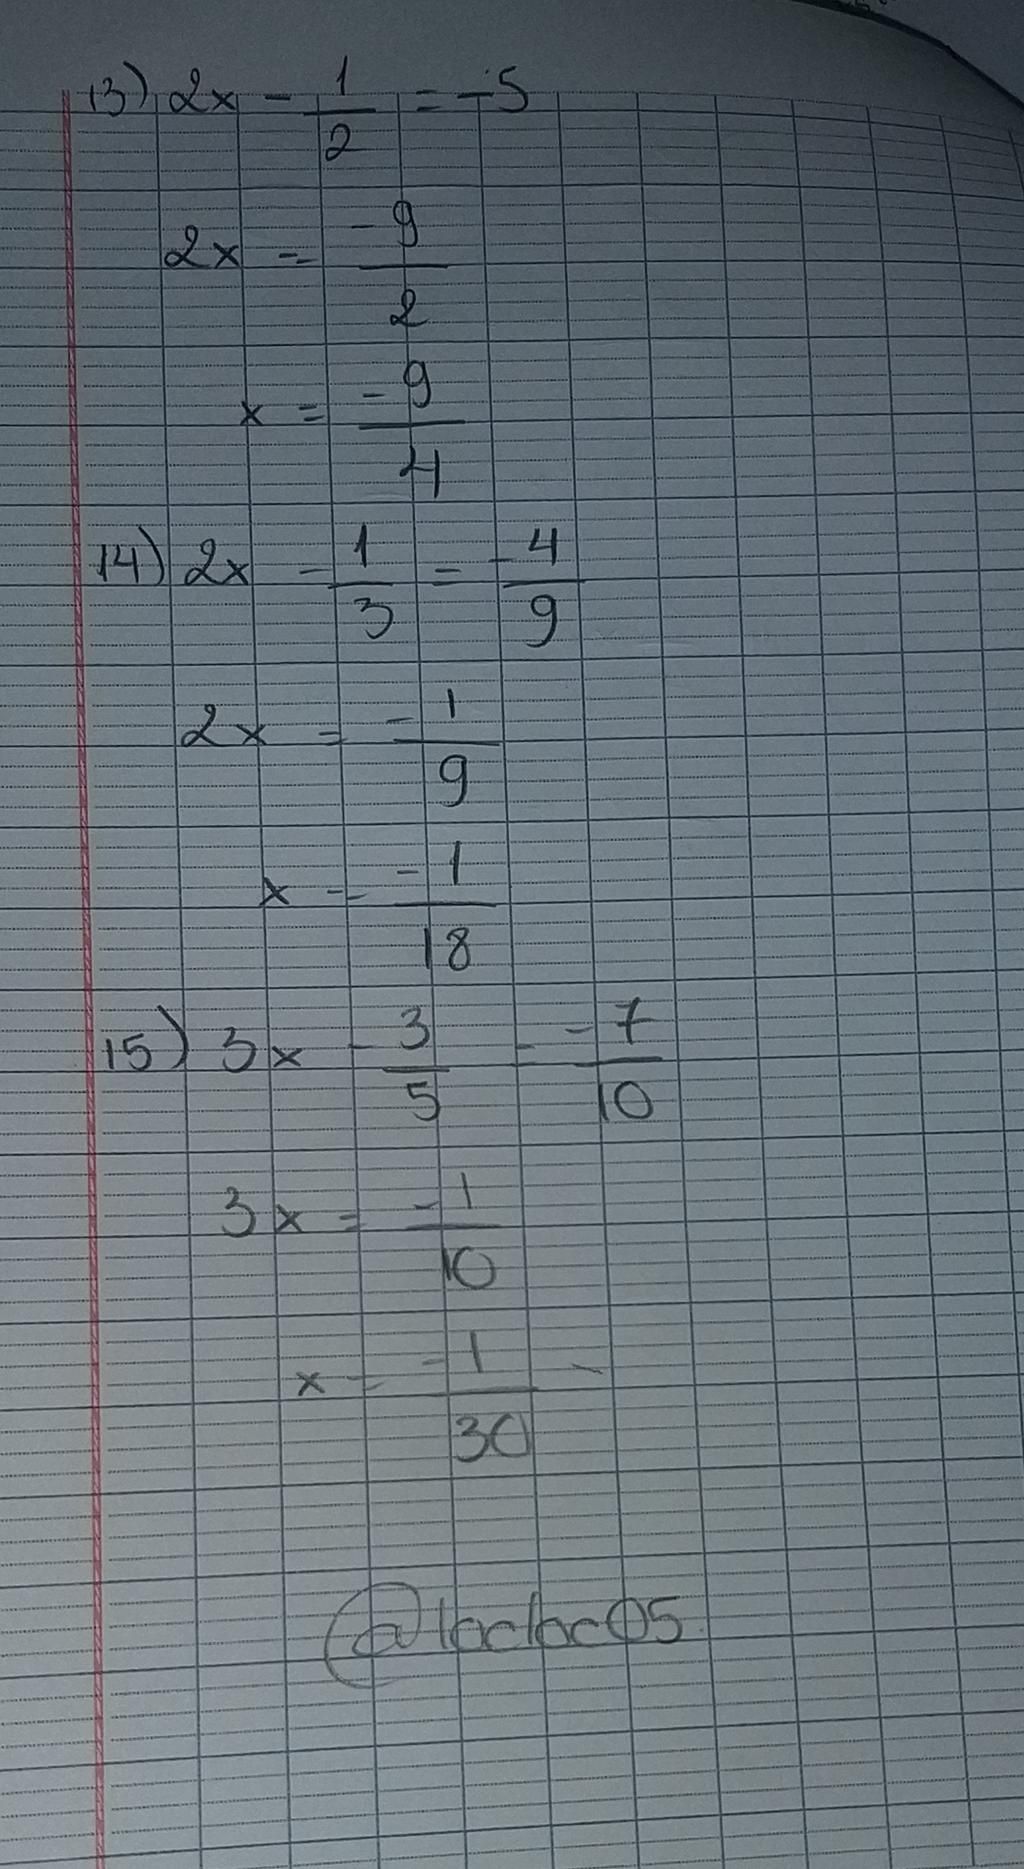 13) 2x - 1/2 = -5
2x = -9/2
x = -9/4
14) 2x - 1/3 = -4/9
2x = -1/9
x = -1/18
15) 3x - 3/5 = -7/10
3x = -1/10
x = -1/30 -
@locloc05